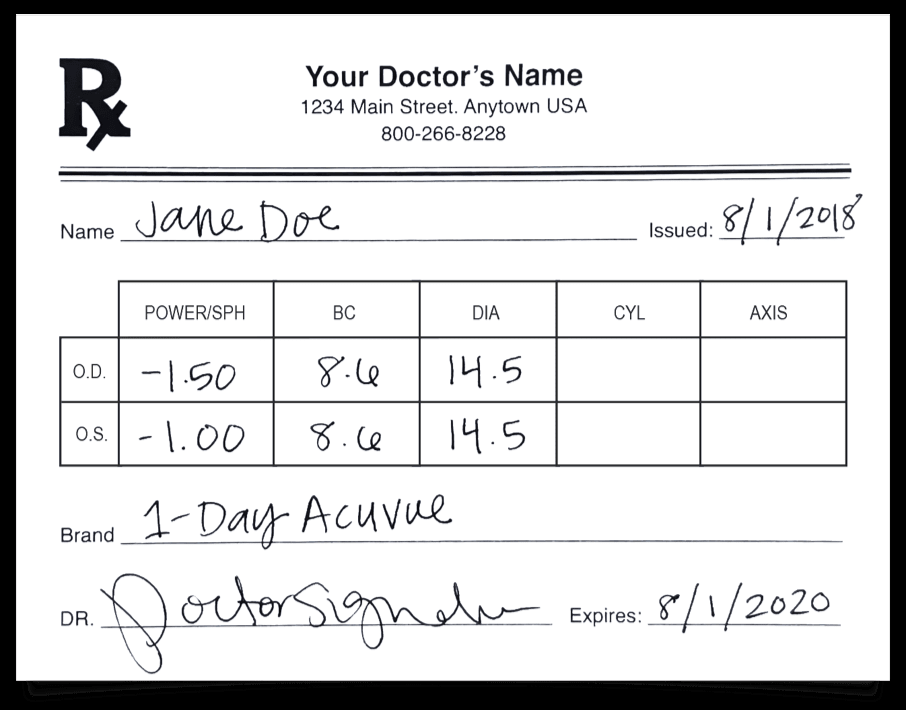 Rx
Your Doctor's Name
1234 Main Street. Anytown USA
800-266-8228
Name Jane Doe Issued: 8/1/2018
POWER/SPH BC DIA CYL AXIS
O.D. -1.50 8.6 14.5
O.S. -1.00 8.6 14.5
Brand 1-Day Acuvue
DR. Doctor Signature Expires: 8/1/2020